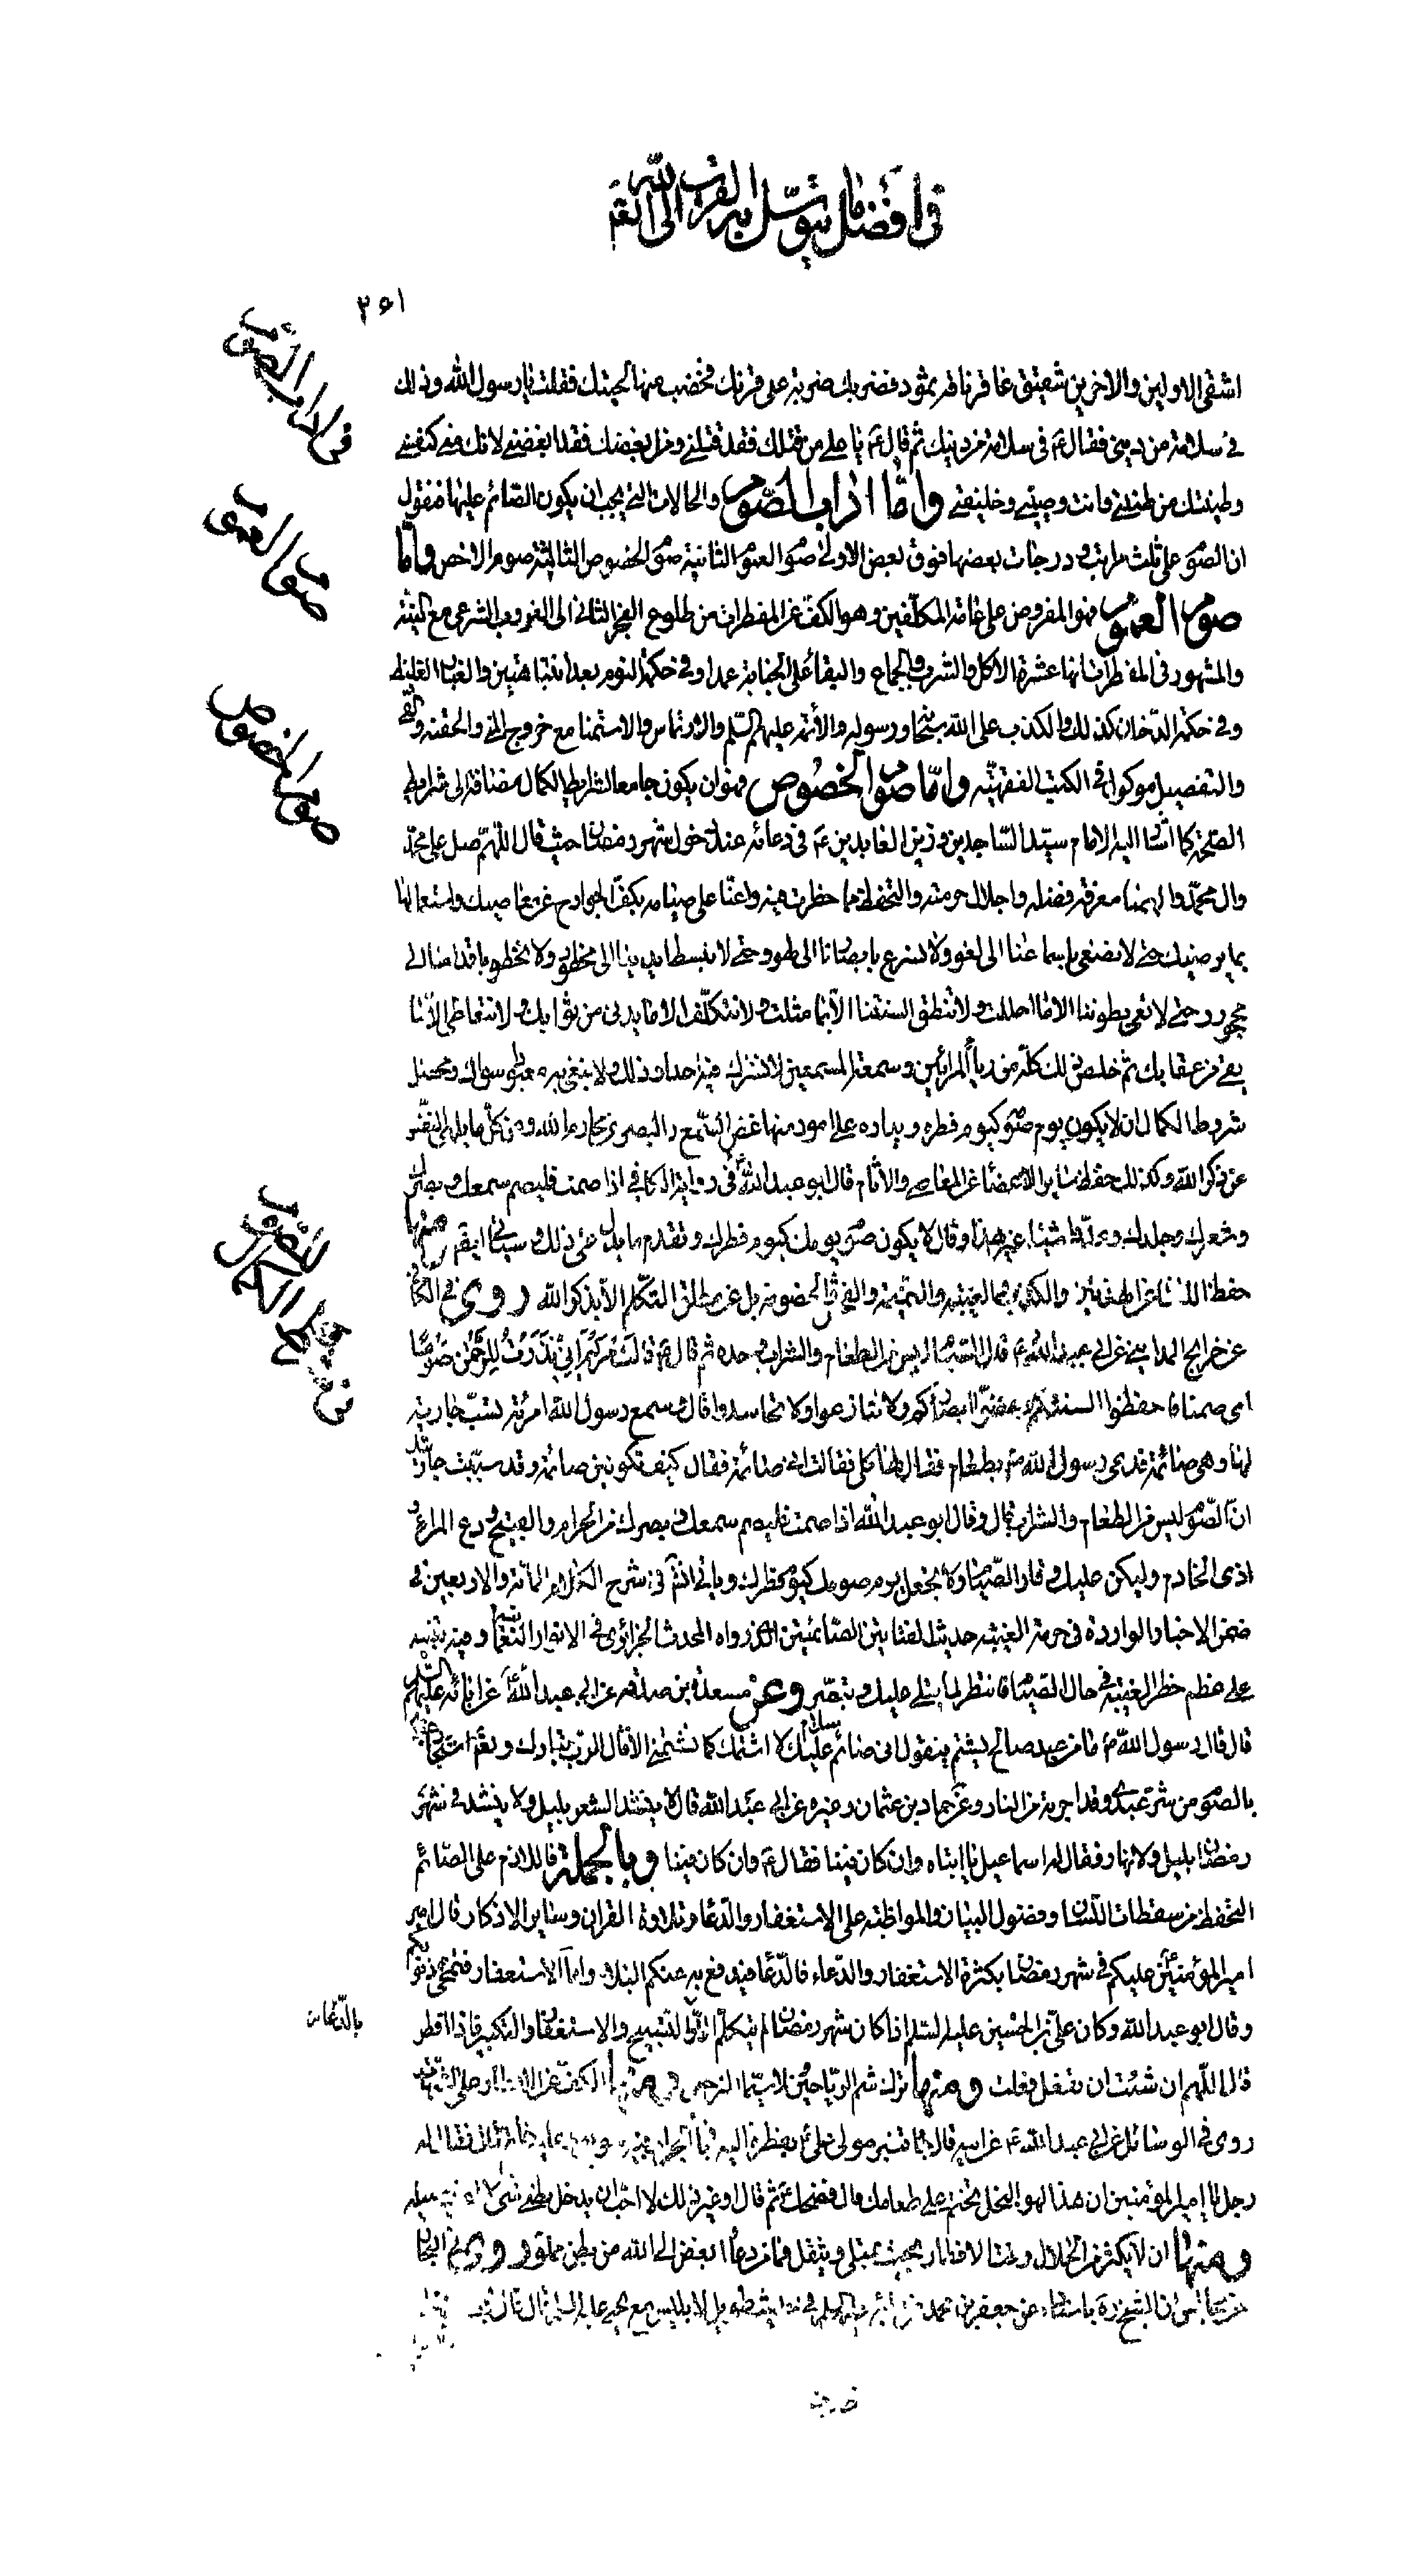 في أفضل ما يتوسل به القرب الى الله تعالى
٢٥١
في الاداب الصوم
اشقى الاولين والاخرين شقيق عاقر ناقة ثمود فضربك ضربة على قرنك فخضب منها لحيتك فقلت يا رسول الله وذلك
في سلامة من ديني فقال ع في سلامة من دينك ثم قال ع يا علي من قتلك فقد قتلني ومن ابغضك فقد ابغضني لانك مني كنفسي
وطينتك من طينتي وانت وصيي وخليفتي واما اداب الصوم والحالات التي يجب ان يكون الصائم عليها فنقول
صوم العموم
ان الصوم على ثلث مراتب ودرجات بعضها فوق بعض الاولى صوم العموم الثانية صوم الخصوص الثالثة صوم الاخص واما
صوم العموم فهو المفروض على عامة المكلفين وهو الكف عن المفطرات من طلوع الفجر الثاني الى الغروب الشرعي مع النية
والمشهور في المفطرات انها عشرة الاكل والشرب والجماع والبقاء على الجنابة عمدا وفي حكمه النوم بعد انتباهتين والغبار الغليظ
صوم الخصوص
وفي حكمه الدخان كذلك والكذب على الله سبحانه ورسوله والأئمة عليهم السلم والارتماس والاستمناء مع خروج المني والحقنه والقي
والتفصيل موكول الى الكتب الفقهيه واما صوم الخصوص فهو ان يكون جامعا لشرايط الكمال مضافة الى شرايط
الصحة كما اشار اليه الامام سيد الساجدين وزين العابدين ع في دعائه عند دخول شهر رمضان حيث قال اللهم صل على محمد
وال محمد والهمنا معرفة فضله واجلال حرمته والتحفظ مما حظرت فيه واعنا على صيامه بكف الجوارح عن معاصيك واستعمالها
بما يرضيك حتى لا نصغي باسماعنا الى لغو ولا نسرع بابصارنا الى لهو وحتى لا نبسط ايدينا الى محظور ولا نخطو باقدامنا الى
محجور وحتى لا تعي بطوننا الا ما احللت ولا تنطق السنتنا الا بما مثلت ولا نتكلف الا ما يدني من ثوابك ولا نتعاطى الا الذي
يقي من عقابك ثم خلص ذلك كله من رياء المرائين وسمعة المسمعين لا نشرك فيه احدا دونك ولا نبتغي به مرادا سواك ومحصل
شروط الكمال ان لا يكون يوم صومه كيوم فطره ومداره على امور منها غض السمع والبصر عن محارم الله وعن كل ما يلهي النفس
في شرايط الكمال للصوم
عن ذكر الله وكذلك حفظ ساير الاعضاء عن المعاصي والاثام قال ابو عبد الله ع في رواية الكافي اذا صمت فليصم سمعك وبصرك
وشعرك وجلدك وعدد اشياء غير هذا وقال لا يكون يوم صومك كيوم فطرك وتقدم ما يدل على ذلك وسيأتي ايضا ومنها
حفظ اللسان عن الهذيان والكذب والغيبة والنميمة والفحش والخصومة بل عن مطلق التكلم الا بذكر الله روى في الكافي
عن جراح المدايني عن ابي عبد الله ع قال ان الصيام ليس من الطعام والشراب وحده ثم قال ع قالت مريم اني نذرت للرحمن صوما
اي صمتا فاحفظوا السنتكم وغضوا ابصاركم ولا تنازعوا ولا تحاسدوا قال وسمع رسول الله امرئة تسب جارية
لها وهي صائمة فدعى رسول الله ص بطعام فقال لها كلي فقالت اني صائمة فقال كيف تكونين صائمة وقد سببت جاريتك
ان الصوم ليس من الطعام والشراب قال وقال ابو عبد الله اذا صمت فليصم سمعك وبصرك من الحرام والقبيح ودع المراء و
اذى الخادم وليكن عليك وقار الصيام ولا تجعل يوم صومك كيوم فطرك ويأتي انشاء في شرح الكلام المائة والاربعين في
ضمن الاخبار الواردة في حرمة الغيبة حديث الفتاتين الصائمتين الذي رواه المحدث الجزائري في الانوار النعمانية وفيه تنبيه
على عظم خطر الغيبة في حال الصيام فانتظر لما يتلى عليك وتبصر وعن مسعدة بن صدقة عن ابي عبد الله ع عن ابائه عليهم السلم
قال قال رسول الله ص ما من عبد صالح يشتم فيقول اني صائم سلام عليك لا اشتمك كما تشتمني الا قال الرب تبارك وتعالى استجار عبدي
بالصوم من شر عبدي وقد اجرته من النار وعن حماد بن عثمان وغيره عن ابي عبد الله قال لا ينشد الشعر بليل ولا ينشد في شهر
رمضان بليل ولا نهار فقال له اسماعيل يا ابتاه وان كان فينا فقال ع وان كان فينا وبالجملة فاللازم على الصائم
التحفظ من سقطات اللسان وفضول البيان والمواظبة على الاستغفار والدعاء وتلاوة القران وساير الاذكار قال امير
امير المؤمنين عليكم في شهر رمضان بكثرة الاستغفار والدعاء فالدعاء فيدفع به عنكم البلاء واما الاستغفار فتمحى ذنوبكم
وقال ابو عبد الله وكان علي بن الحسين عليه السلم اذا كان شهر رمضان لم يتكلم الا والتسبيح والاستغفار والتكبير فاذا افطر
بالدعاء
قال اللهم ان شئت ان تفعل فعلت ومنها ترك شم الرياحين لا سيما النرجس ومنها الكف عن
روى في الوسائل عن ابي عبد الله ع عن ابيه قال جاء قنبر مولى علي ع بفطرة اليه قال فجاء بجراب فيه سويق عليه خاتم قال فقال له
رجل يا امير المؤمنين ان هذا لهو البخل تختم على طعامك قال فضحك ع ثم قال او غير ذلك لا احب ان يدخل بطني شيء لا اعرف سبيله
ومنها ان لا يكثر من الحلال وقت الافطار بحيث يمتلي ويثقل فما من وعاء ابغض الى الله من بطن مملو روى في البحار
من مجالس ابن الشيخ ره باسناده عن جعفر بن محمد